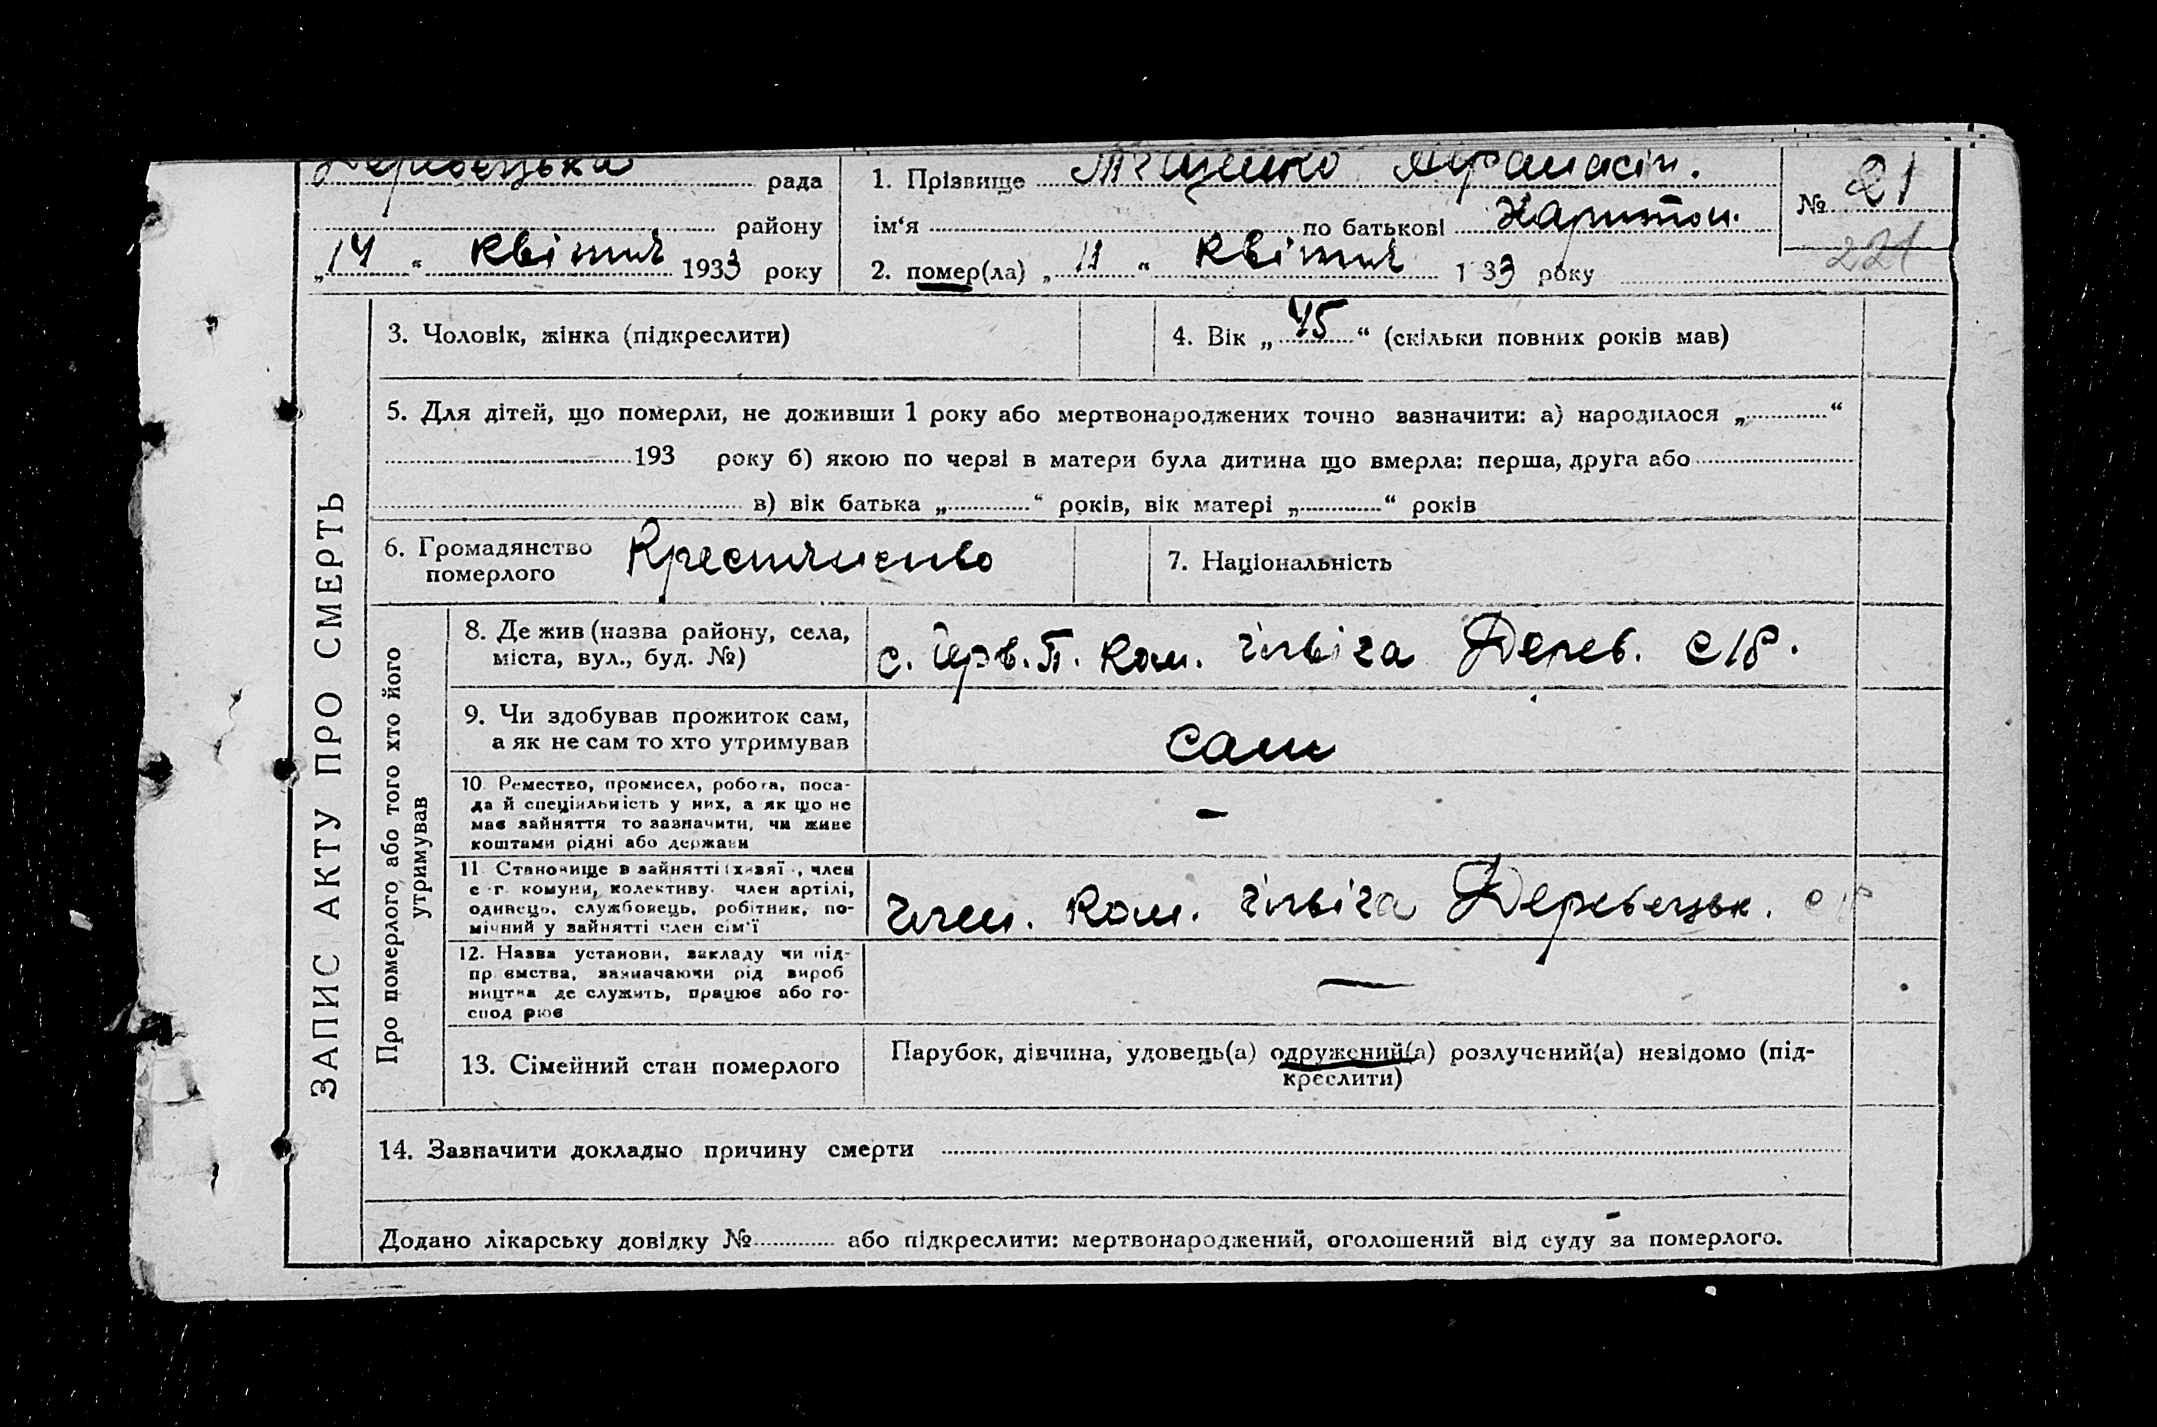 рада
району
„14“ квітня 1933 року
1. Прізвище Афанасій.
ім‘я по батькові Харитон.
2. помер(ла) „11“ квітня 1 33 року
№ 21
221
ЗАПИС АКТУ ПРО СМЕРТЬ
3. Чоловік, жінка (підкреслити)
4. Вік „45“ (скільки повних років мав)
5. Для дітей, що померли, не доживши 1 року або мертвонароджених точно зазначити: а) народилося „ “
193 року б) якою по черзі в матери була дитина що вмерла: перша, друга або
в) вік батька „ “ років, вік матері „ “ років
6. Громадянство
померлого
Крестянство
7. Національність
Про померлого або того хто його
утримував
8. Де жив (назва району, села,
міста, вул., буд. №)
с. Ком. Дереб. с/р.
9. Чи здобував прожиток сам,
а як не сам то хто утримував
сам
10. Ремество, промисел, робота, поса-
да й спеціяльність у них, а як що не
має зайняття то зазначити, чи живе
коштами рідні або держави
-
11. Становище в зайнятті (хазяї , член
с г. комуни, колективу. член артілі,
одинець, службовець, робітник, по-
мічний у зайнятті член сім'ї
член. Ком. Деребецьк. с/р
12. Назва установи, закладу чи під-
пр ємства, зазначаючи рід вироб
ництва де служить, працює або го-
спод рює
—
13. Сімейний стан померлого
Парубок, дівчина, удовець(а) одружений(а) розлучений(а) невідомо (під-
креслити)
14. Зазначити докладно причину смерти
Додано лікарську довідку № або підкреслити: мертвонароджений, оголошений від суду за померлого.